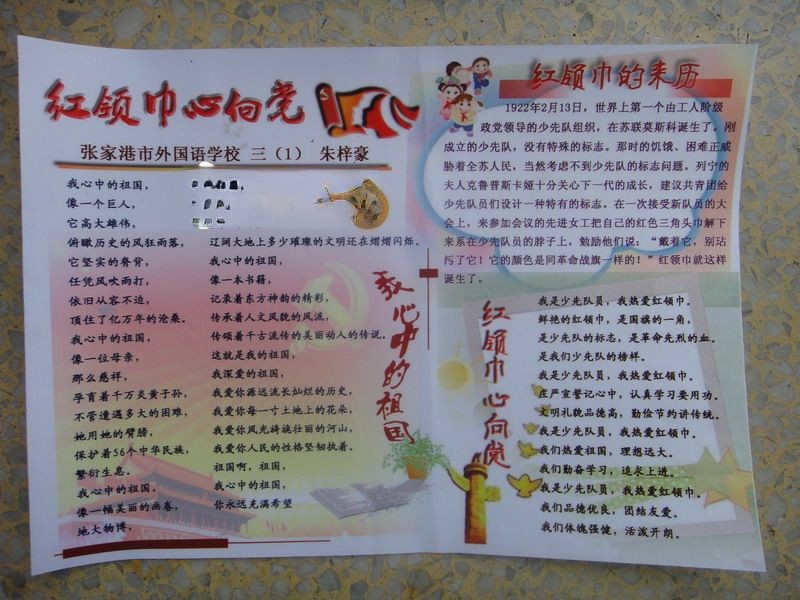 红领巾心向党
张家港市外国语学校 三（1） 朱梓豪
我心中的祖国，
像一个巨人，
它高大雄伟，
俯瞰历史的风狂雨落，
它坚实的脊背，
任凭风吹雨打，
依旧从容不迫，
顶住了亿万年的沧桑。
我心中的祖国，
像一位母亲，
那么慈祥，
孕育着千万炎黄子孙，
不管遭遇多大的困难，
她用她的臂膀，
保护着56个中华民族，
繁衍生息。
我心中的祖国，
像一幅美丽的画卷，
地大物博，
辽阔大地上多少璀璨的文明还在熠熠闪烁。
我心中的祖国，
像一本书籍，
记录着东方神韵的精彩，
传承着人文风貌的风流，
传颂着千古流传的美丽动人的传说。
这就是我的祖国，
我深爱的祖国，
我爱你源远流长灿烂的历史，
我爱你每一寸土地上的花朵，
我爱你风光旖旎壮丽的河山，
我爱你人民的性格坚韧执着。
祖国啊，祖国，
我心中的祖国，
你永远充满希望
我心中的祖国
红领巾的来历
1922年2月13日，世界上第一个由工人阶级
政党领导的少先队组织，在苏联莫斯科诞生了。刚
成立的少先队，没有特殊的标志。那时的饥饿、困难正威
胁着全苏人民，当然考虑不到少先队的标志问题。列宁的
夫人克鲁普斯卡娅十分关心下一代的成长，建议共青团给
少先队员们设计一种特有的标志。在一次接受新队员的大
会上，来参加会议的先进女工把自己的红色三角头巾解下
来系在少先队员的脖子上，勉励他们说：“戴着它，别玷
污了它！它的颜色是同革命战旗一样的！”红领巾就这样
诞生了。
红领巾心向党
我是少先队员，我热爱红领巾。
鲜艳的红领巾，是国旗的一角，
是少先队的标志，是革命先烈的血。
是我们少先队的榜样。
我是少先队员，我热爱红领巾。
庄严宣誓记心中，认真学习要用功。
文明礼貌品德高，勤俭节约讲传统。
我是少先队员，我热爱红领巾。
我们热爱祖国，理想远大。
我们勤奋学习，追求上进。
我是少先队员，我热爱红领巾。
我们品德优良，团结友爱。
我们体魄强健，活泼开朗。